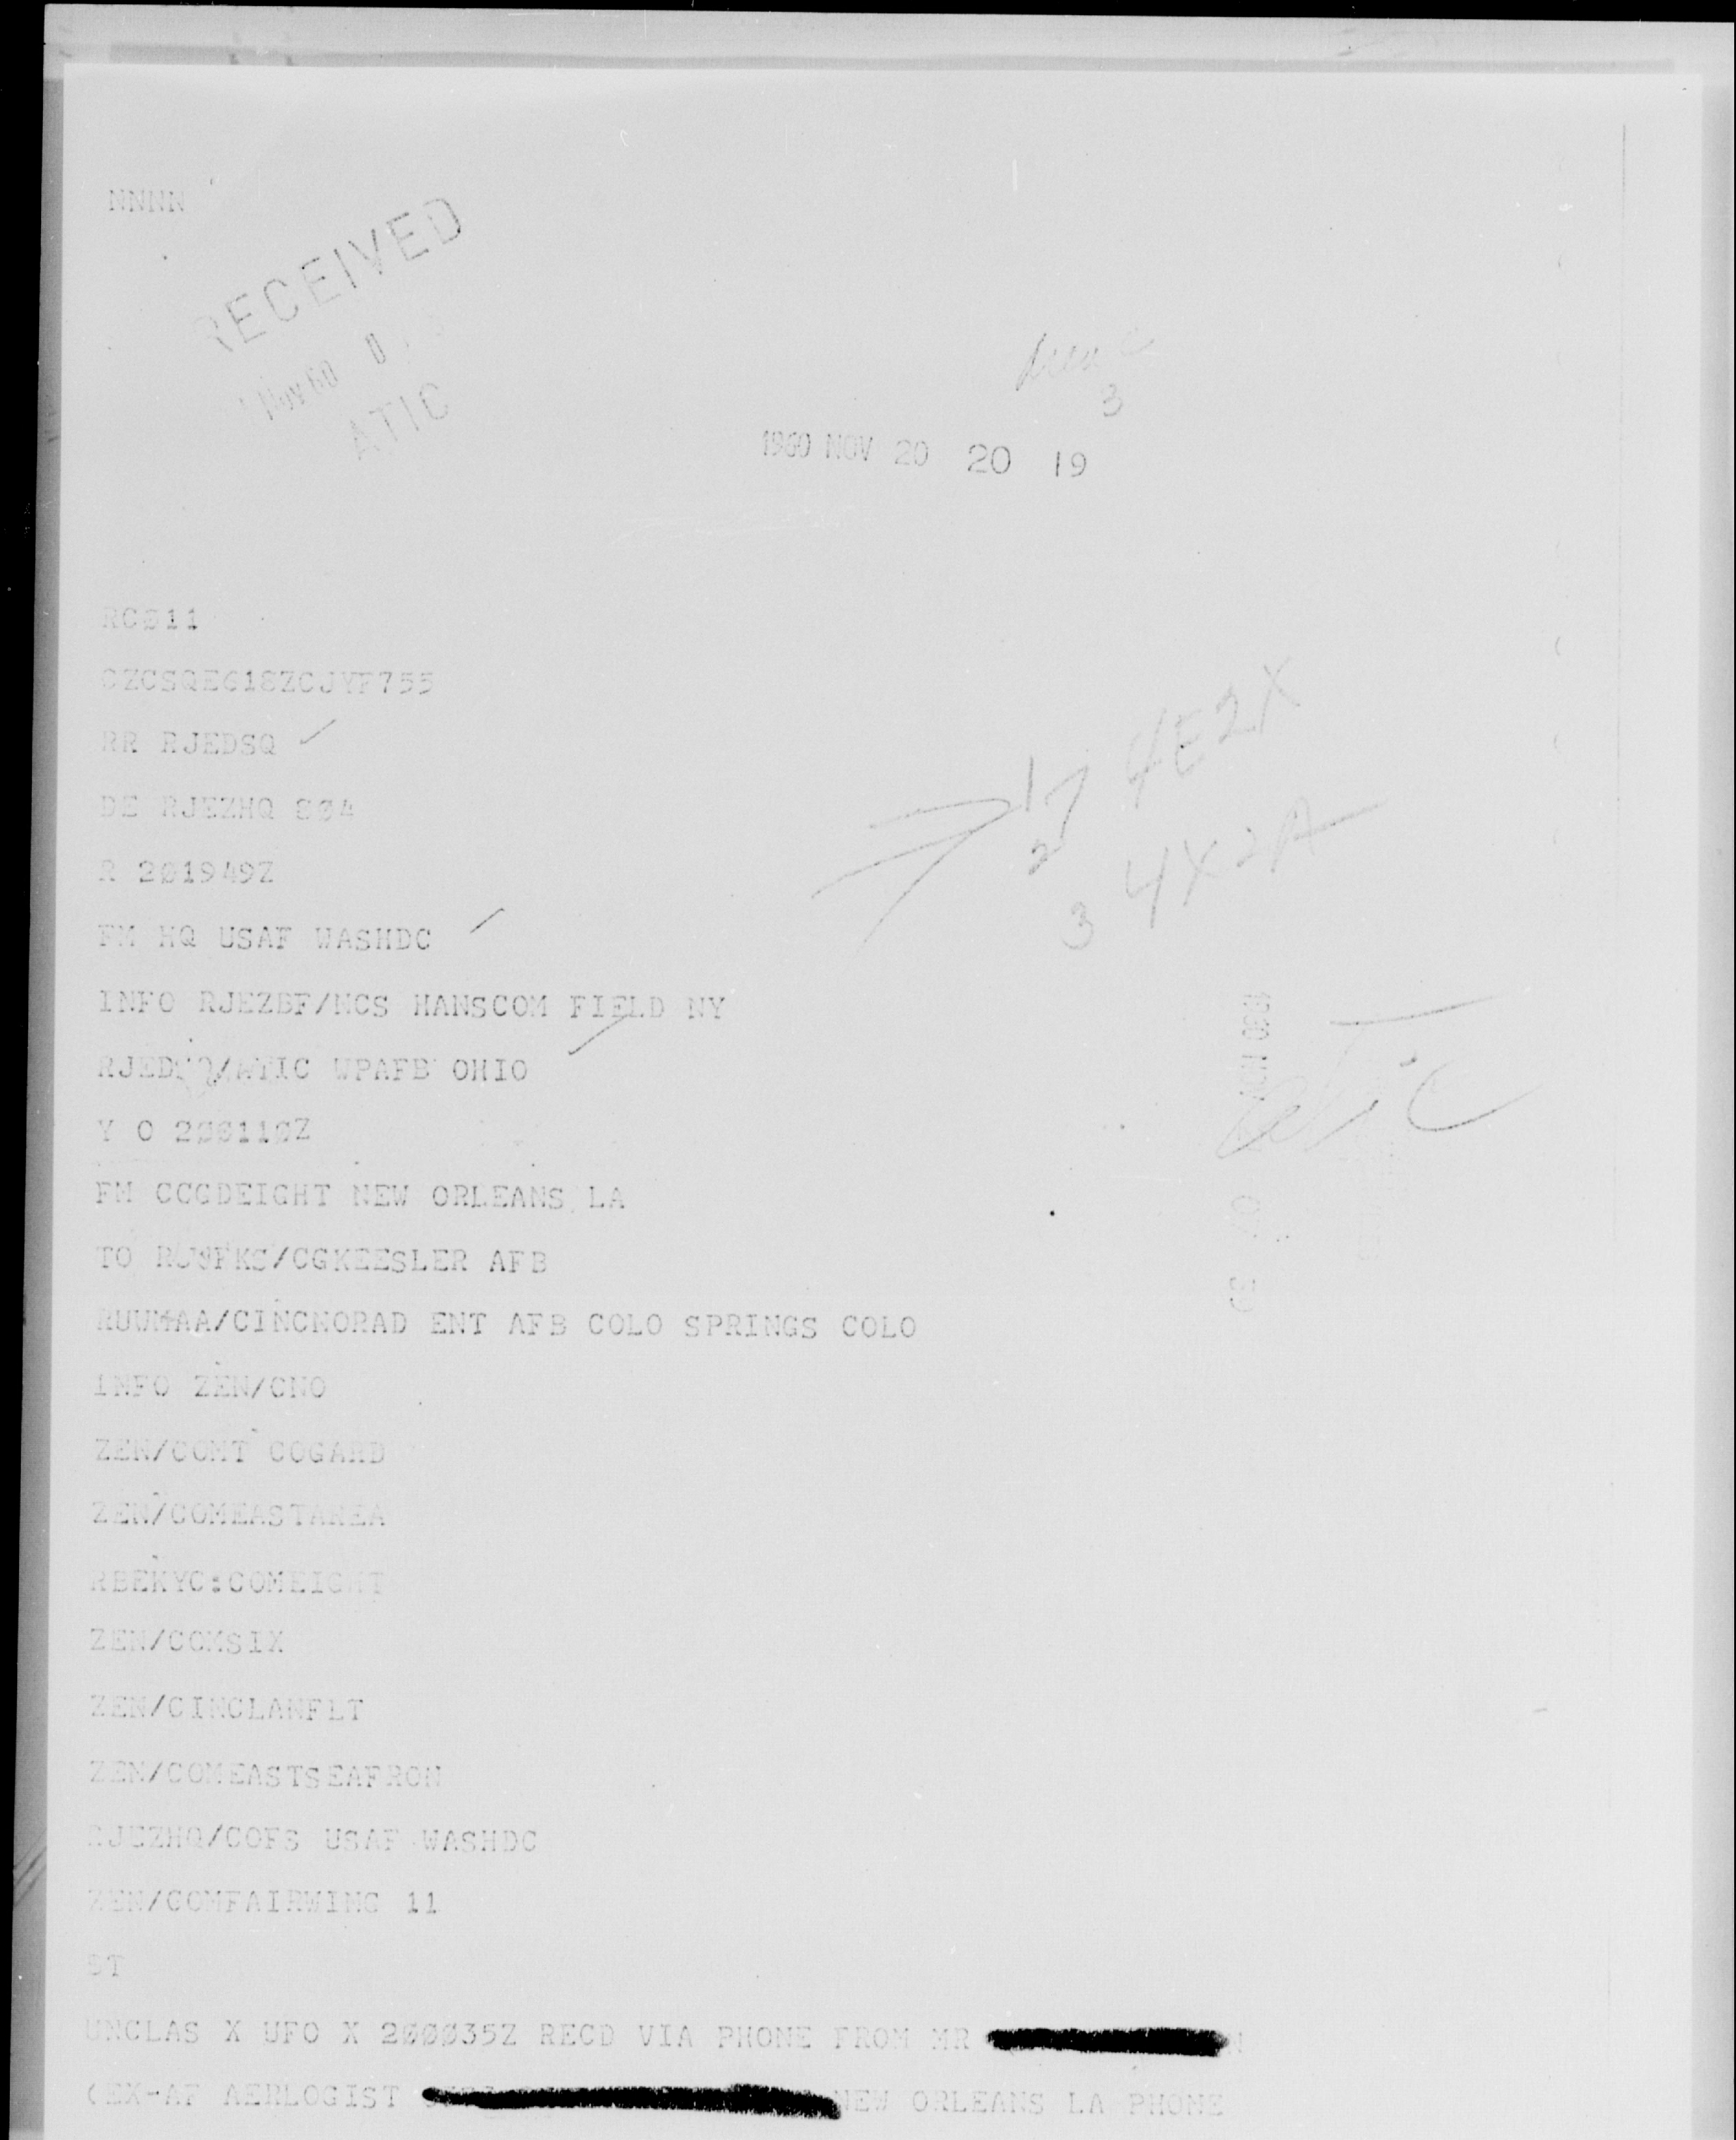 NNNN
RECEIVED
ATIC
3
1960 NOV 20 20 19
RCØ11
CZCSQE618ZCJYF755
RR RJEDSQ
DE RJEZHQ 8Ø4
R 2Ø1949Z
FM HQ USAF WASHDC
INFO RJEZBF/NCS HANSCOM FIELD NY
WPAFB OHIO
Y O 2ØØ11ØZ
FM CCGDEIGHT NEW ORLEANS LA
TO RJWFKS/CGKEESLER AFB
CINCNORAD ENT AFB COLO SPRINGS COLO
INFO ZEN/CNO
ZEN/COMT COGARD
ZEN/COMEASTAREA
RBEKYC:COMEIGHT
ZEN/COMSIX
ZEN/CINCLANFLT
ZEN/COMEASTSEAFRON
RJEZHQ/COFS USAF WASHDC
ZEN/COMFAIRWING 11
BT
UNCLAS X UFO X 2ØØØ35Z RECD VIA PHONE FROM MR
(EX-AF AERLOGIST NEW ORLEANS LA PHONE
1 4E2X
2
3 4X2A
ATIC